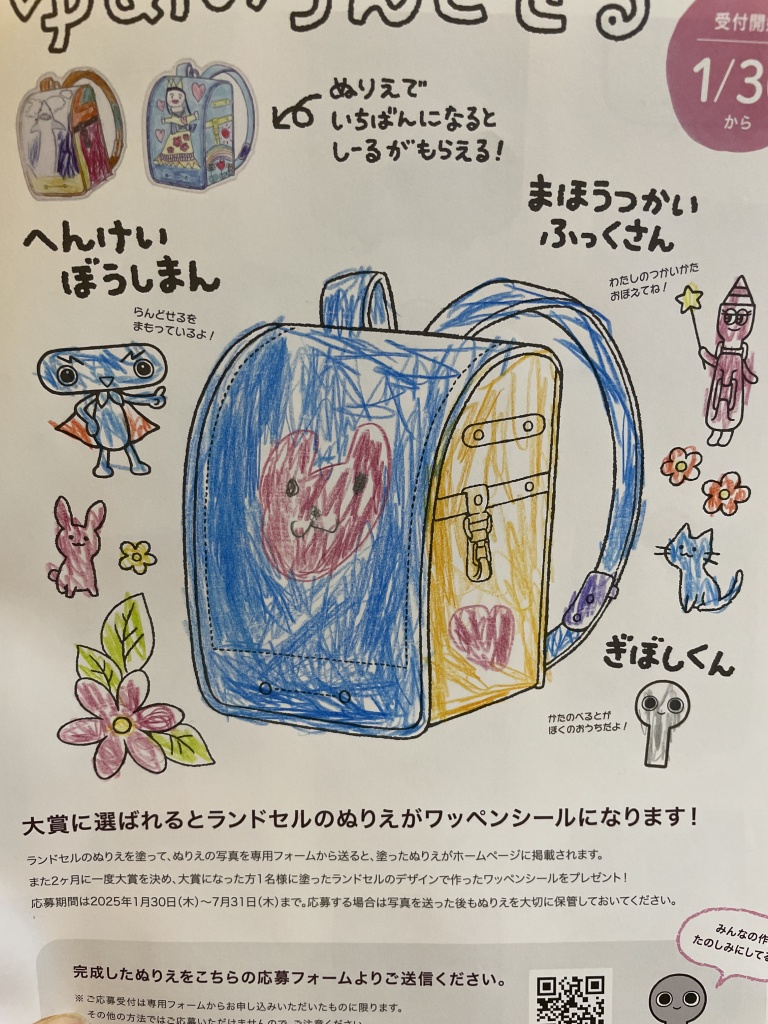 ゆめいろらんどせる
受付開始
1/30
から
ぬりえで
いちばんになると
しーるがもらえる!
まほうつかい
ふっくさん
わたしのつかいかた
おぼえてね!
へんけい
ぼうしまん
らんどせるを
まもっているよ!
ぎぼしくん
かたのべるとが
ぼくのおうちだよ!
大賞に選ばれるとランドセルのぬりえがワッペンシールになります!
ランドセルのぬりえを塗って、ぬりえの写真を専用フォームから送ると、塗ったぬりえがホームページに掲載されます。
また2ヶ月に一度大賞を決め、大賞になった方1名様に塗ったランドセルのデザインで作ったワッペンシールをプレゼント!
応募期間は2025年1月30日(木)~7月31日(木)まで。応募する場合は写真を送った後もぬりえを大切に保管しておいてください。
みんなの作
たのしみにしてる
完成したぬりえをこちらの応募フォームよりご送信ください。
※ご応募受付は専用フォームからお申し込みいただいたものに限ります。
その他の方法ではご応募いただけませんので、ご注意ください